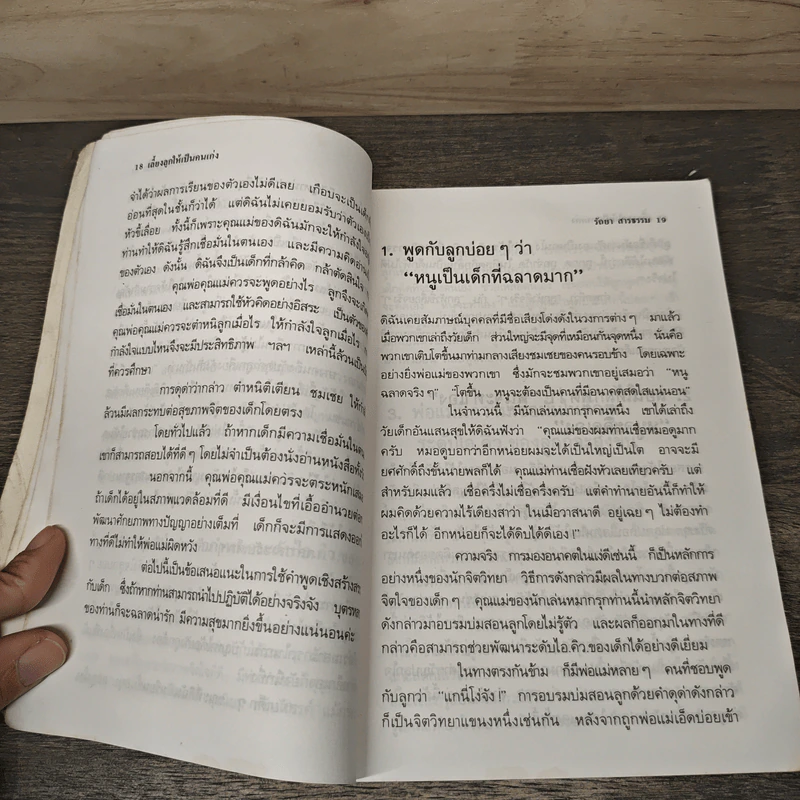 18 เลี้ยงลูกให้เป็นคนเก่ง
จำได้ว่าผลการเรียนของตัวเองไม่ดีเลย เกือบจะเป็นเด็ก
อ่อนที่สุดในชั้นก็ว่าได้ แต่ดิฉันไม่เคยยอมรับว่าตัวเอง
หัวขี้เลื่อย ทั้งนี้ก็เพราะคุณแม่ของดิฉันมักจะให้กำลัง
ท่านทำให้ดิฉันรู้สึกเชื่อมั่นในตนเอง และมีความคิดอ่าน
ของตัวเอง ดังนั้น ดิฉันจึงเป็นเด็กที่กล้าคิด กล้าตัดสินใจ
คุณพ่อคุณแม่ควรจะพูดอย่างไร ลูกจึงจะ
เชื่อมั่นในตนเอง และสามารถใช้หัวคิดอย่างอิสระ เป็นตัวของ
คุณพ่อคุณแม่ควรจะตำหนิลูกเมื่อไร ให้กำลังใจลูกเมื่อไร
กำลังใจแบบไหนจึงจะมีประสิทธิภาพ ฯลฯ เหล่านี้ล้วนเป็น
ที่ควรศึกษา
การดุด่าว่ากล่าว ตำหนิติเตียน ชมเชย ให้
ล้วนมีผลกระทบต่อสุขภาพจิตของเด็กโดยตรง
โดยทั่วไปแล้ว ถ้าหากเด็กมีความเชื่อมั่นใน
เขาก็สามารถสอบได้ที่ดี ๆ โดยไม่จำเป็นต้องนั่งอ่านหนังสือทั้ง
นอกจากนี้ คุณพ่อคุณแม่ควรจะตระหนัก
ถ้าเด็กได้อยู่ในสภาพแวดล้อมที่ดี มีเงื่อนไขที่เอื้ออำนวยต่อ
พัฒนาศักยภาพทางปัญญาอย่างเต็มที่ เด็กก็จะมีการแสดงออก
ทางที่ดีไม่ทำให้พ่อแม่ผิดหวัง
ต่อไปนี้เป็นข้อเสนอแนะในการใช้คำพูดเชิงสร้าง
กับเด็ก ซึ่งถ้าหากท่านสามารถนำไปปฏิบัติได้อย่างจริงจัง บุตร
ของท่านก็จะฉลาดน่ารัก มีความสุขมากยิ่งขึ้นอย่างแน่นอนค่ะ
วัถยา สารธรรม 19
1. พูดกับลูกบ่อย ๆ ว่า
“หนูเป็นเด็กที่ฉลาดมาก”
ดิฉันเคยสัมภาษณ์บุคคลที่มีชื่อเสียงโด่งดังในวงการต่าง ๆ มาแล้ว
เมื่อพวกเขาเล่าถึงวัยเด็ก ส่วนใหญ่จะมีจุดที่เหมือนกันจุดหนึ่ง นั่นคือ
พวกเขาเติบโตขึ้นมาท่ามกลางเสียงชมเชยของคนรอบข้าง โดยเฉพาะ
อย่างยิ่งพ่อแม่ของพวกเขา ซึ่งมักจะชมพวกเขาอยู่เสมอว่า “หนู
ฉลาดจริง ๆ” “โตขึ้น หนูจะต้องเป็นคนที่มีอนาคตสดใสแน่นอน”
ในจำนวนนี้ มีนักเล่นหมากรุกคนหนึ่ง เขาได้เล่าถึง
วัยเด็กอันแสนสุขให้ดิฉันฟังว่า “คุณแม่ของผมท่านเชื่อหมอดูมาก
ครับ หมอดูบอกว่าอีกหน่อยผมจะได้เป็นใหญ่เป็นโต อาจจะมี
ยศศักดิ์ถึงชั้นนายพลก็ได้ คุณแม่ท่านเชื่อฝังหัวเลยเทียวครับ แต่
สำหรับผมแล้ว เชื่อครึ่งไม่เชื่อครึ่งครับ แต่คำทำนายอันนี้ก็ทำให้
ผมคิดด้วยความไร้เดียงสาว่า ในเมื่อวาสนาดี อยู่เฉย ๆ ไม่ต้องทำ
อะไรก็ได้ อีกหน่อยก็จะได้ดิบได้ดีเอง !”
ความจริง การมองอนาคตในแง่ดีเช่นนี้ ก็เป็นหลักการ
อย่างหนึ่งของนักจิตวิทยา วิธีการดังกล่าวมีผลในทางบวกต่อสภาพ
จิตใจของเด็ก ๆ คุณแม่ของนักเล่นหมากรุกท่านนี้นำหลักจิตวิทยา
ดังกล่าวมาอบรมบ่มสอนลูกโดยไม่รู้ตัว และผลก็ออกมาในทางที่ดี
กล่าวคือสามารถช่วยพัฒนาระดับไอ.คิว.ของเด็กได้อย่างดีเยี่ยม
ในทางตรงกันข้าม ก็มีพ่อแม่หลาย ๆ คนที่ชอบพูด
กับลูกว่า “แกนี่โง่จัง !” การอบรมบ่มสอนลูกด้วยคำดุด่าดังกล่าว
ก็เป็นจิตวิทยาแขนงหนึ่งเช่นกัน หลังจากถูกพ่อแม่เอ็ดบ่อยเข้า